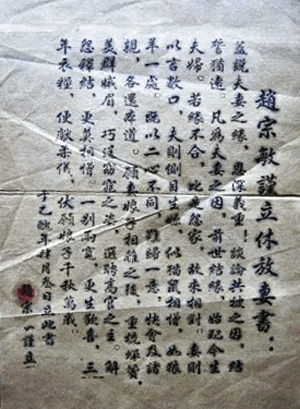 趙宗敏謹立休放妻書：
蓋説夫妻之緣，恩深義重！談論共被之因，結
誓猶遠。凡為夫妻之因，前世結緣，始配今生
夫婦。若緣不合，比是怨家，故來相對。妻則
以言數口，夫則側目生嫌，似貓鼠相憎，如狼
羊一處。既以二心不同，難歸一意，快會及諸
親，各還本道。願妻娘子相離之後，重梳蟬鬢，
美群娥眉，巧逞窈窕之姿，選聘高官之主。解
怨釋結，更莫相憎。一別兩寬，更生歡喜。三
年衣糧，便獻柔儀。伏願娘子千秋萬歲。
年月叁日立此書
趙宗謹立